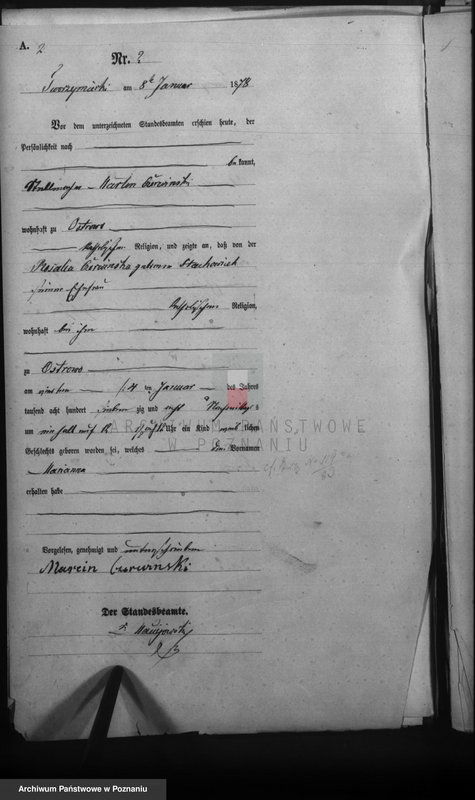 A. 2
Nr. 2
am 8ten Januar 1878
Vor dem unterzeichneten Standesbeamten erschien heute, der
Persönlichkeit nach
bekannt,
Martin
wohnhaft zu Ostrowo
katholischer Religion, und zeigte an, daß von der
Rosalia geborene Stachowiak
seiner Ehefrau
katholischer Religion,
wohnhaft bei ihm
zu Ostrowo
am vierten 4 ten Januar des Jahres
tausend acht hundert sieben zig und acht Nachmittags
um Uhr ein Kind weiblichen
Geschlechts geboren worden sei, welches den Vornamen
Marianna
erhalten habe
Vorgelesen, genehmigt und unterschrieben
Marcin Czerwinski
Der Standesbeamte.
ARCHIWUM PAŃSTWOWE
W POZNANIU
Archiwum Państwowe w Poznaniu